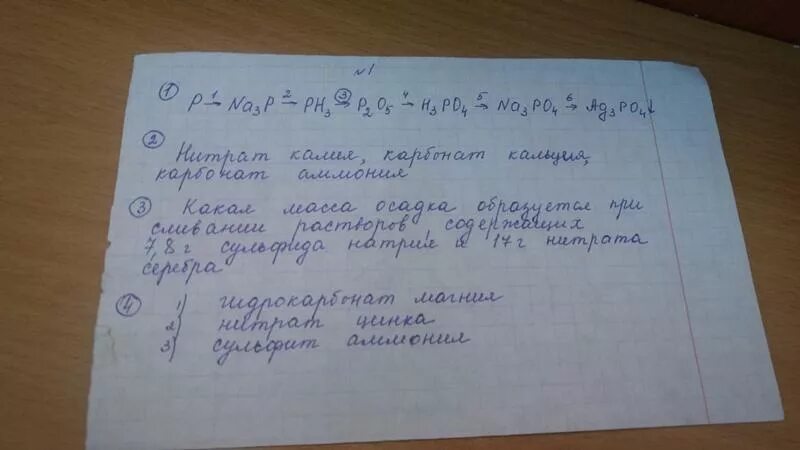 №1
① P 1→ Na₃P 2→ PH₃ ③→ P₂O₅ 4→ H₃PO₄ 5→ Na₃PO₄ 6→ Ag₃PO₄↓
②
Нитрат калия, карбонат кальция,
карбонат аммония
③ Какая масса осадка образуется при
сливании растворов, содержащих
7,8 г сульфида натрия и 17 г нитрата
серебра
④ 1) гидрокарбонат магния
2) нитрат цинка
3) сульфит аммония